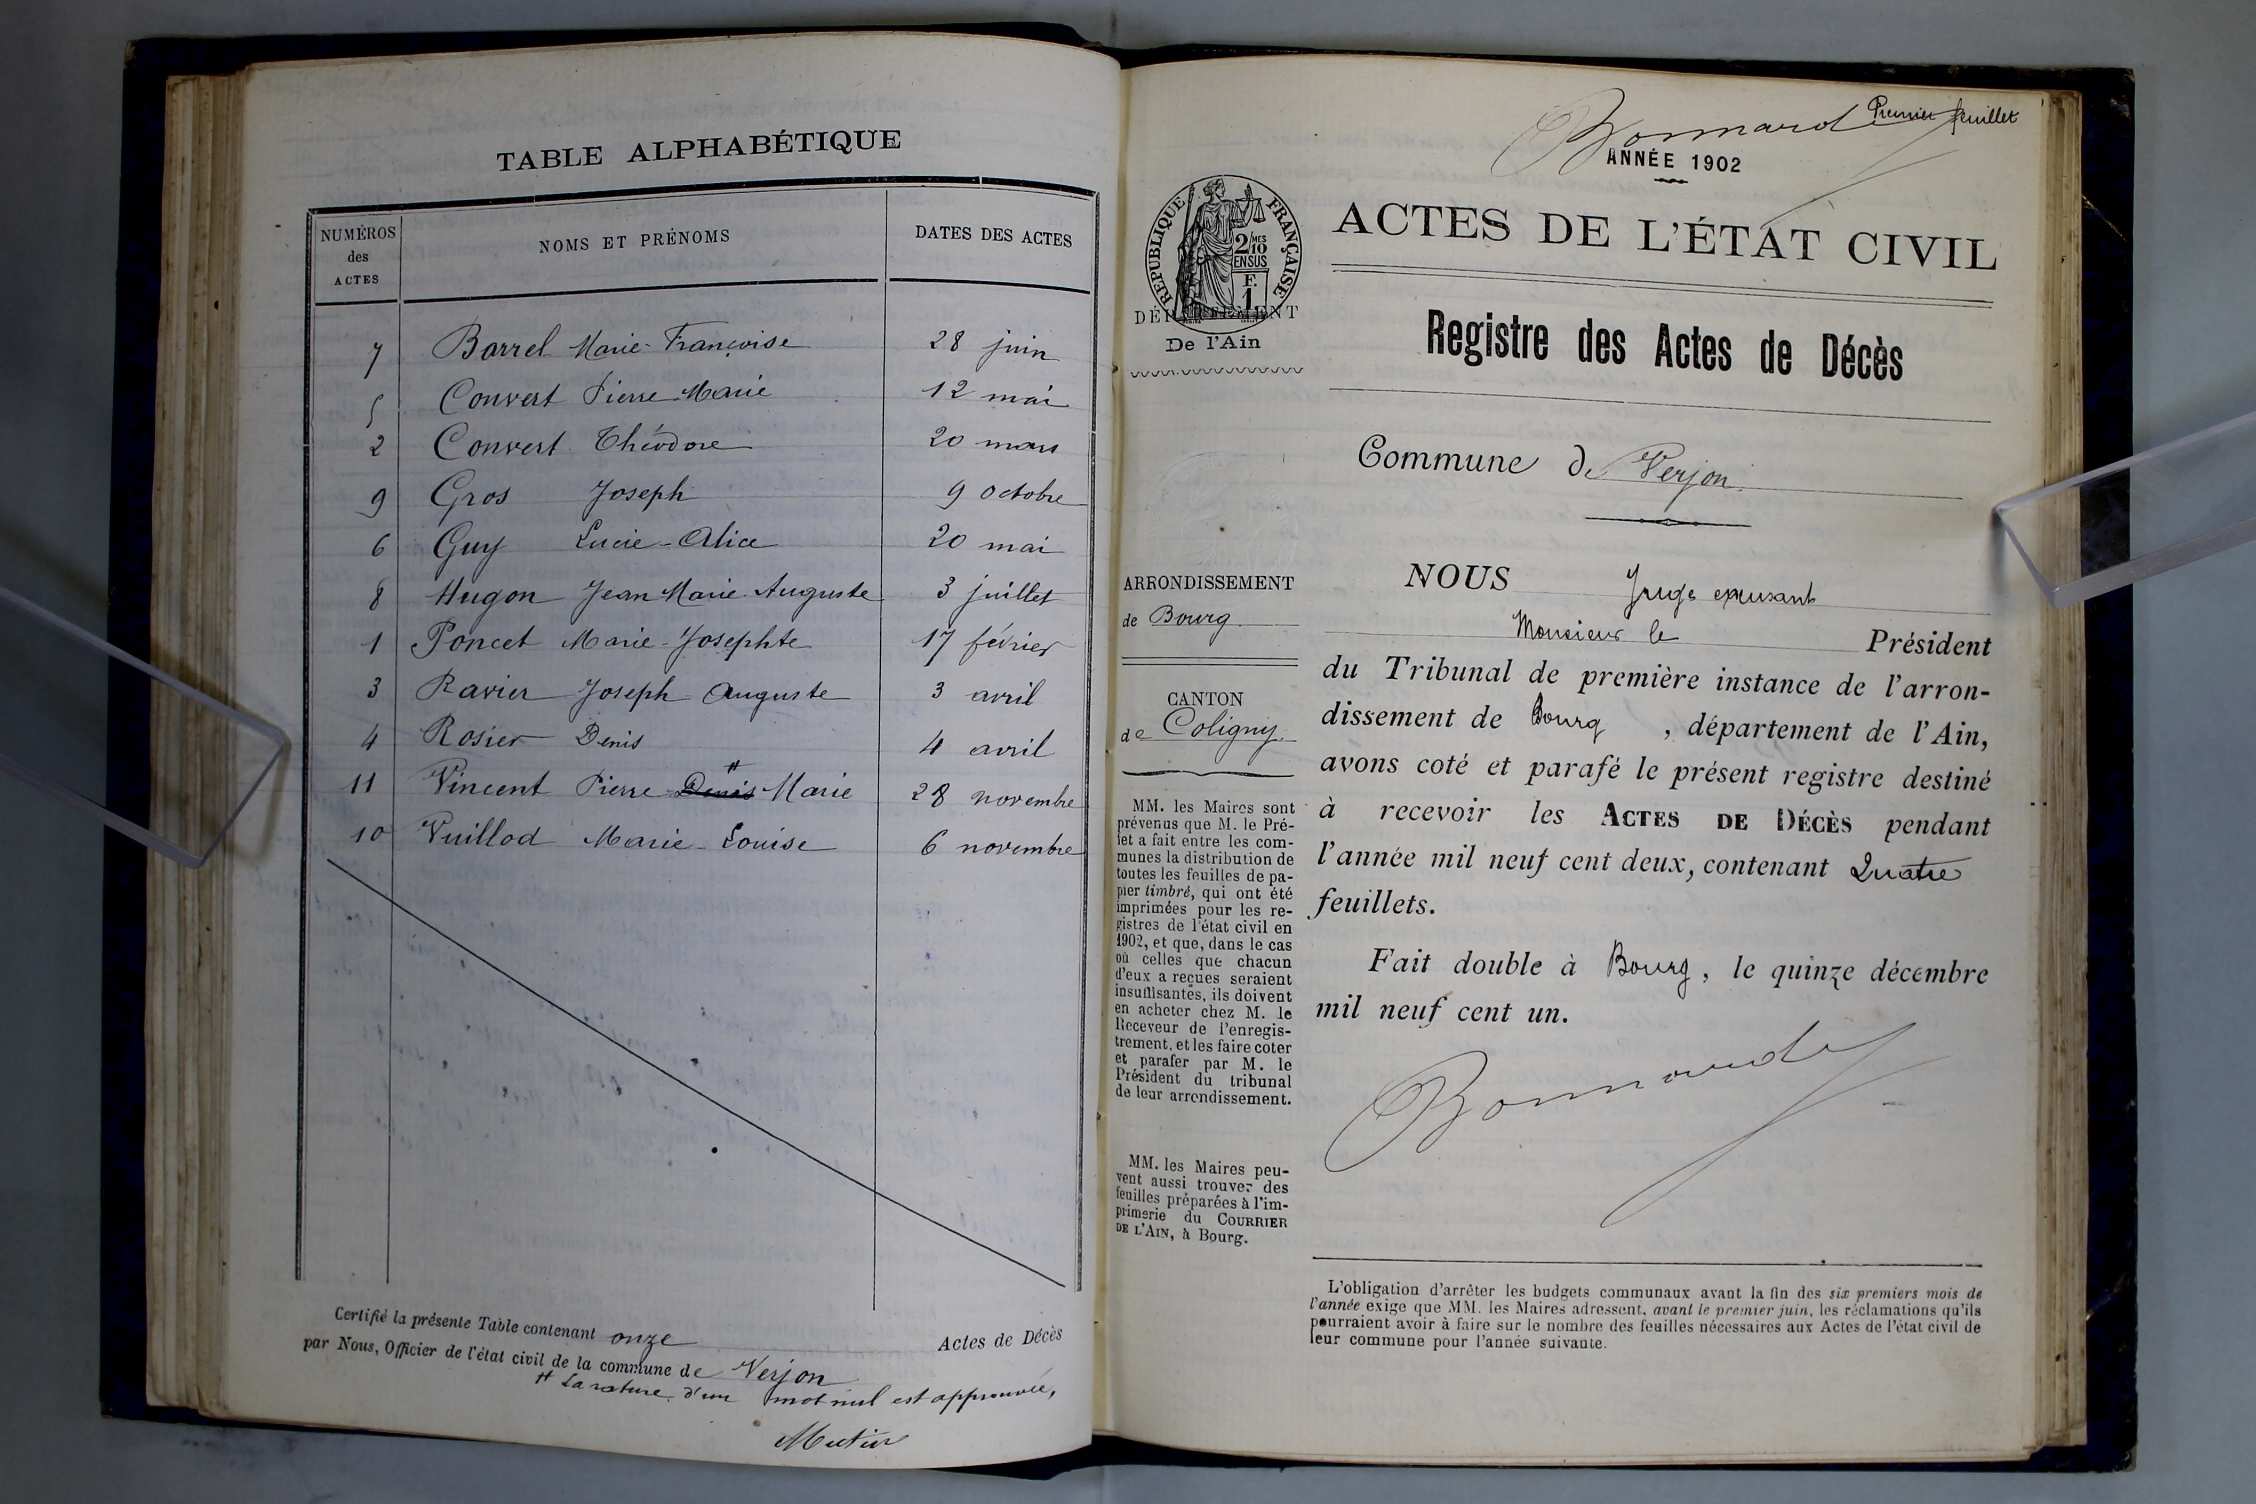 TABLE ALPHABÉTIQUE
NUMÉROS des ACTES
NOMS ET PRÉNOMS
DATES DES ACTES
7 Barrel Marie-Françoise 28 juin
5 Convert Pierre Marie 12 mai
2 Convert Théodore 20 mars
9 Gros Joseph 9 octobre
6 Guy Lucie-Alice 20 mai
8 Hugon Jean Marie Auguste 3 juillet
1 Poncet Marie-Josephte 17 février
3 Ravier Joseph Auguste 3 avril
4 Rosier Denis 4 avril
11 Vincent Pierre Denis Marie 28 novembre
10 Vuillod Marie-Louise 6 novembre
Certifié la présente Table contenant onze Actes de Décès
par Nous, Officier de l'état civil de la commune de Verjon
# La rature d'un mot nul est approuvée,
Premier feuillet
Bonnard
ANNÉE 1902
RÉPUBLIQUE FRANÇAISE
2/10 MES
EN SUS
F.
1
DÉPARTEMENT
De l'Ain
ACTES DE L'ÉTAT CIVIL
Registre des Actes de Décès
Commune de Verjon
ARRONDISSEMENT
de Bourg
CANTON
de Coligny
MM. les Maires sont
prévenus que M. le Pré-
fet a fait entre les com-
munes la distribution de
toutes les feuilles de pa-
pier timbré, qui ont été
imprimées pour les re-
gistres de l'état civil en
1902, et que, dans le cas
où celles que chacun
d'eux a reçues seraient
insuffisantes, ils doivent
en acheter chez M. le
Receveur de l'enregis-
trement, et les faire coter
et parafer par M. le
Président du tribunal
de leur arrondissement.
MM. les Maires peu-
vent aussi trouver des
feuilles préparées à l'im-
primerie du COURRIER
DE L'AIN, à Bourg.
NOUS Juge
Monsieur le Président
du Tribunal de première instance de l'arron-
dissement de Bourg, département de l'Ain,
avons coté et parafé le présent registre destiné
à recevoir les ACTES DE DÉCÈS pendant
l'année mil neuf cent deux, contenant Quatre
feuillets.
Fait double à Bourg, le quinze décembre
mil neuf cent un.
Bonnard
L'obligation d'arrêter les budgets communaux avant la fin des six premiers mois de
l'année exige que MM. les Maires adressent, avant le premier juin, les réclamations qu'ils
pourraient avoir à faire sur le nombre des feuilles nécessaires aux Actes de l'état civil de
leur commune pour l'année suivante.